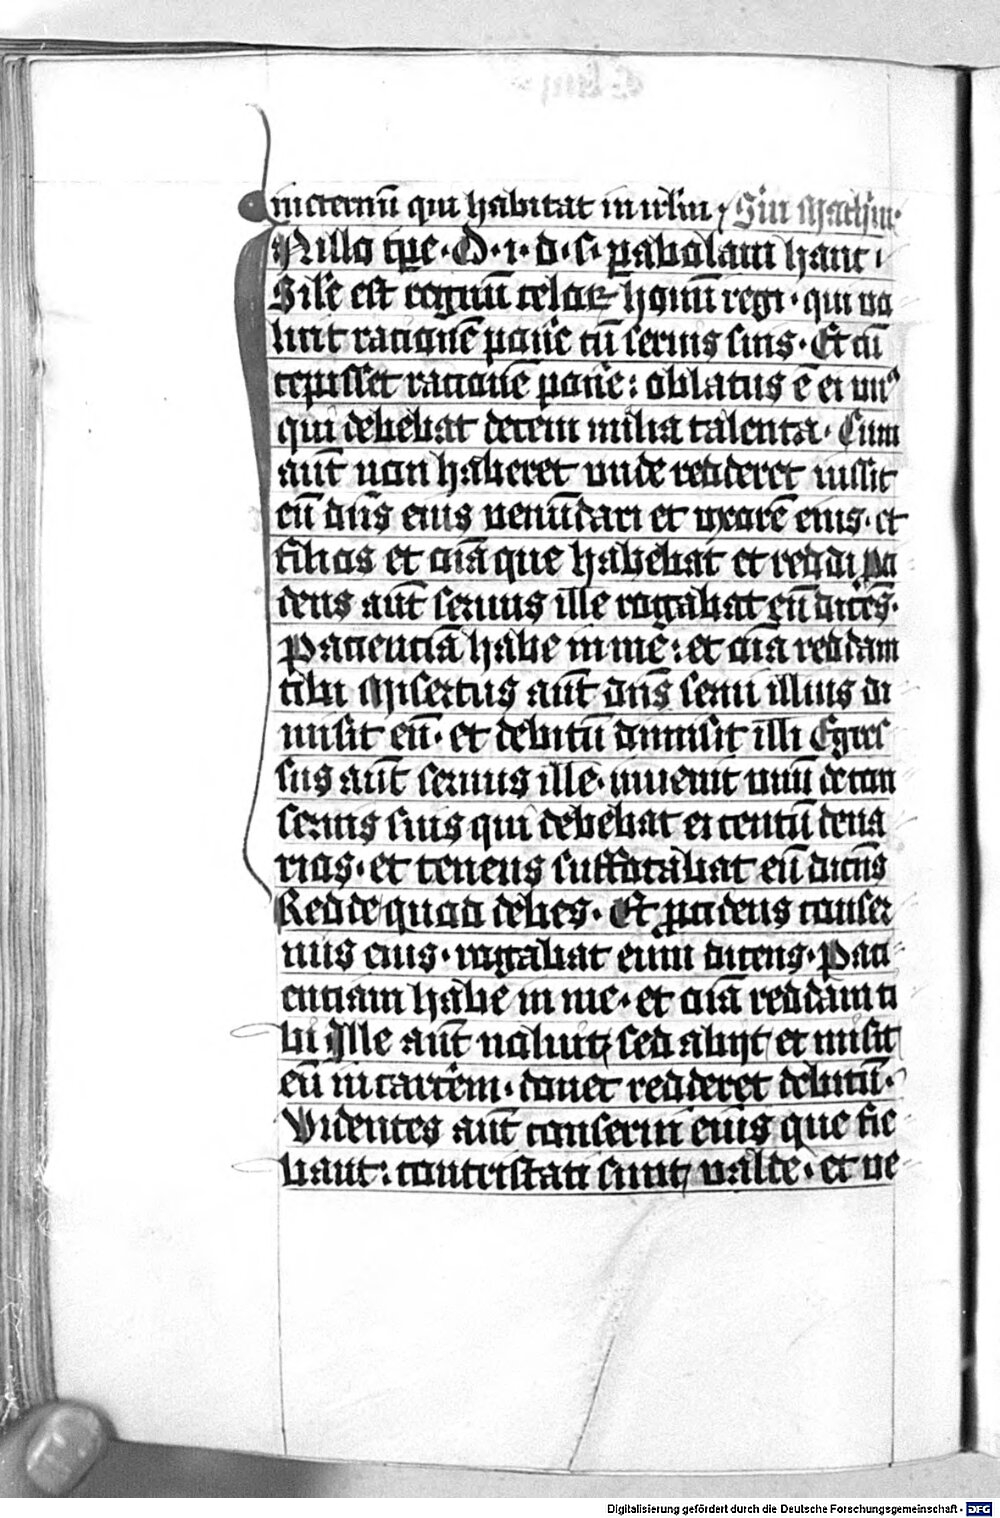 in eternū qui habitat in irl̄m Sm̄ Mathm̄.
In illo tp̄e. D. i. d. s. pabolam hanc.
Sil'e est regnū celoꝝ homī regi. qui uo
luit racionē ponē cū seruis suis. Et cū
cepisset racionē ponē: oblatus ē ei unꝰ
qui debebat decem milia talenta. Cum
aūt non haberet unde redderet iussit
eū dn̄s eius uenūdari et vxorē eius. et
filios et om̄a que habebat et reddi p̱ci
dens aūt seruus ille rogabat eū dicēs.
Pacienciā habe in me: et om̄a reddam
tibi Misertus aūt dn̄s serui illius di
misit eū. et debitū dimisit illi Egres
sus aūt seruus ille. inuenit unū de con
seruis suis qui debebat ei centū dena
rios. et tenens suffocabat eū dicēs
Redde quod debes. Et p̱cidens conser
uus eius. rogabat eum dicens. Paci
enciam habe in me. et om̄a reddam ti
bi Ille aūt noluit sed abijt et misit
eū in carcēm. donec redderet debitū.
Videntes aūt conserui eius que fie
bant: contristati sunt ualde. et ue
Digitalisierung gefördert durch die Deutsche Forschungsgemeinschaft - DFG